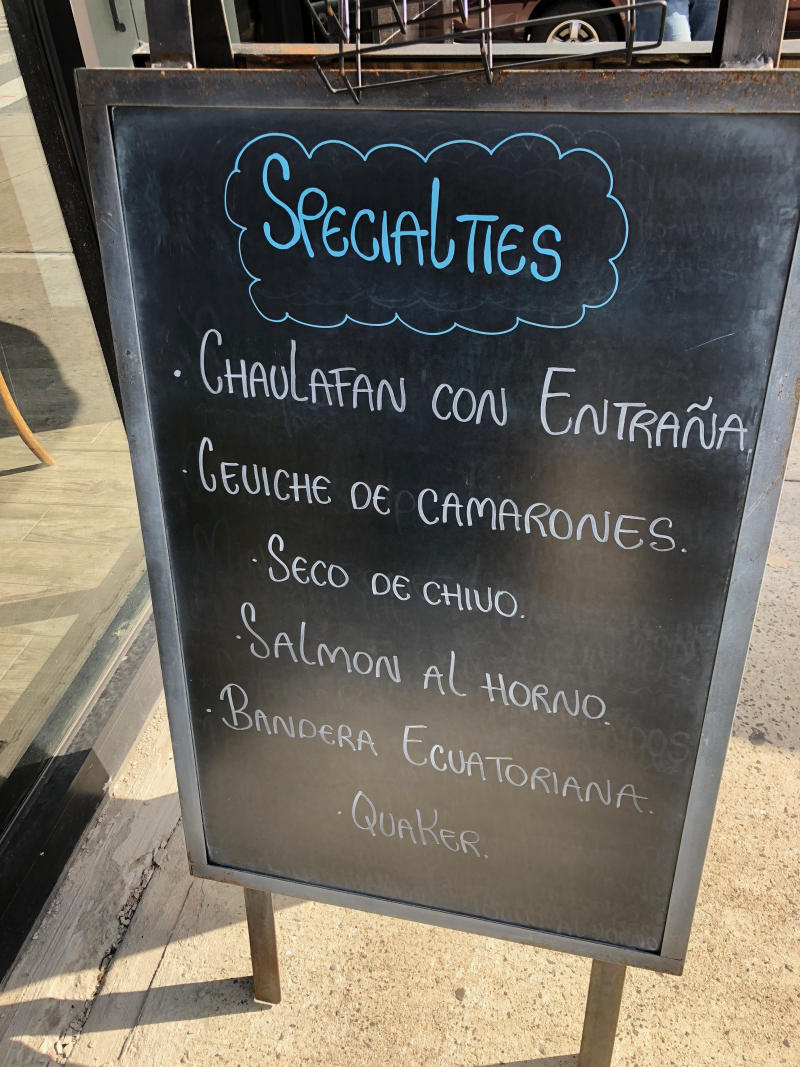 Specialties
· Chaulafan con Entraña
· Ceviche de camarones.
· Seco de chivo.
· Salmon al horno.
· Bandera Ecuatoriana.
· Quaker.